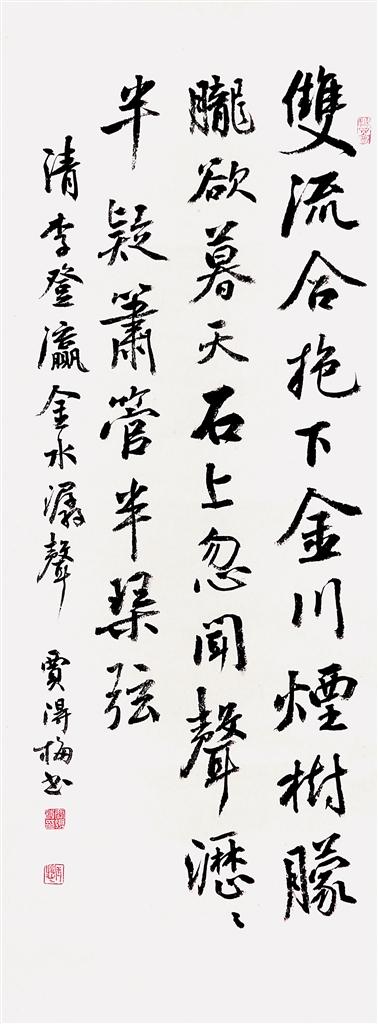 雙流合抱下金川煙樹朦
朧欲暮天石上忽聞聲瀝〻
半疑簫管半琴弦
清李登瀛金水潺聲 賈得梅書